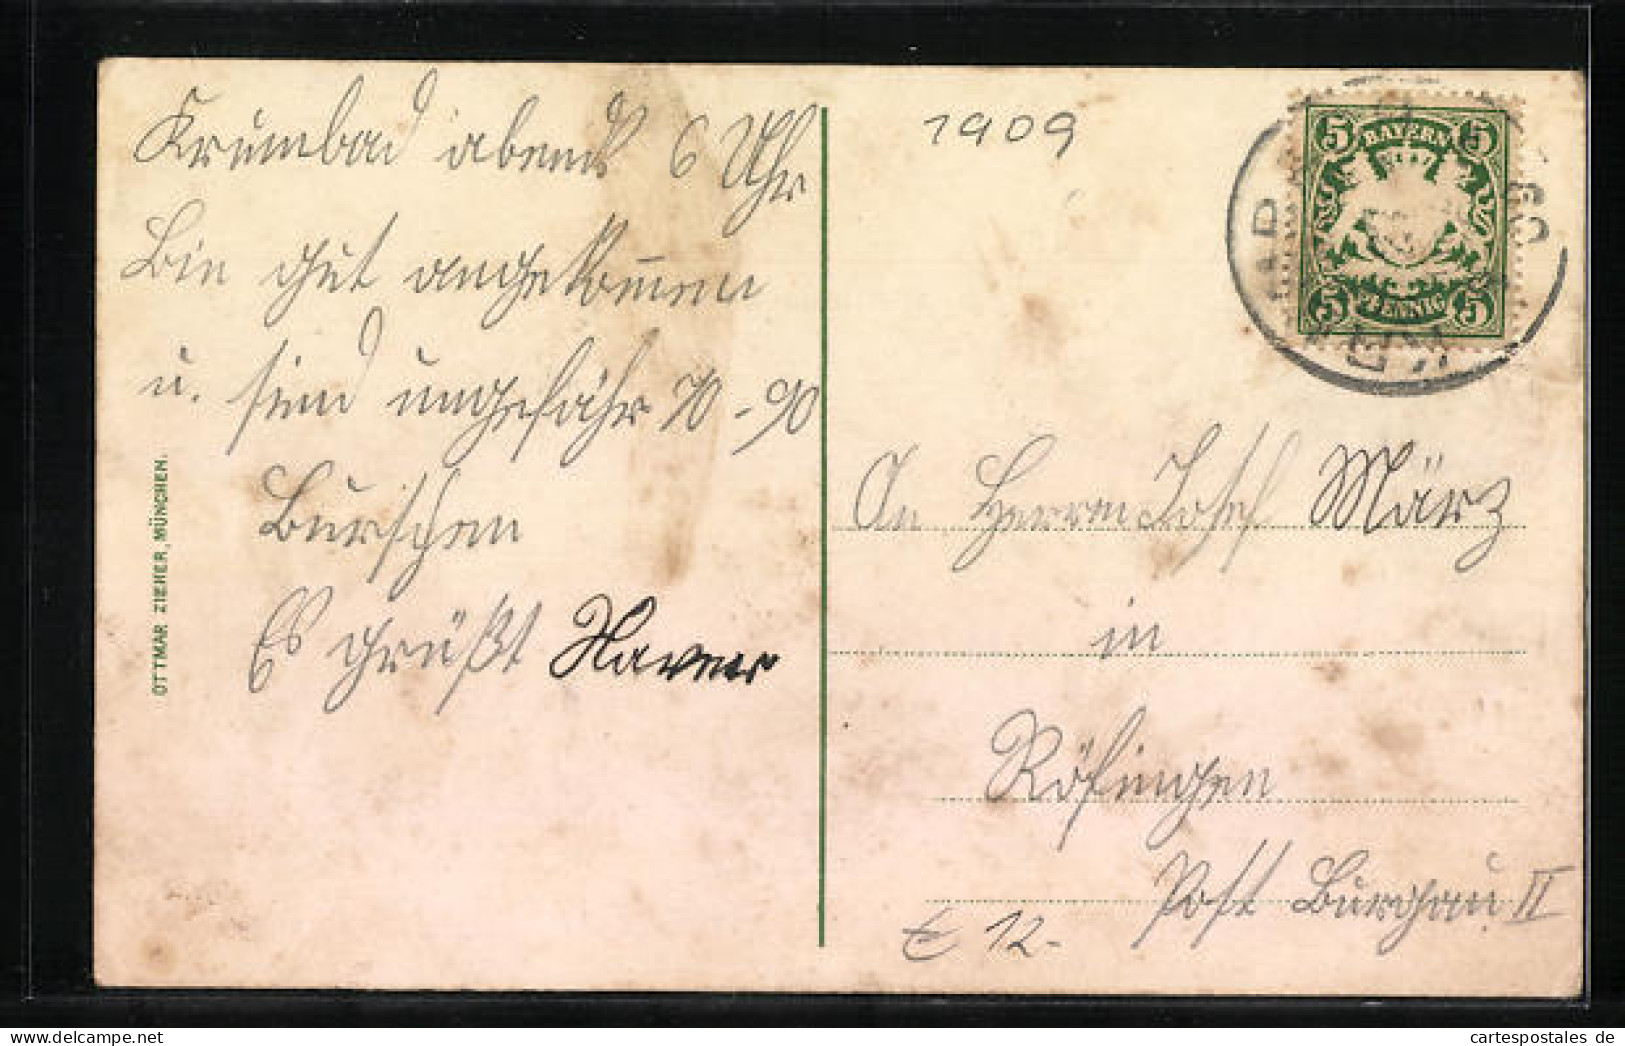 Krumbad abends 6 Uhr
Bin gut angekommen
u. sind ungefähr 70-90
Burschen
Es grüßt Xaver
OTTMAR ZIEHER, MÜNCHEN.
1909
5 BAYERN 5
5 PFENNIG 5
An Herrn Josef März
in
Röfingen
Post Burgau II
€ 12.-
cartespostales de